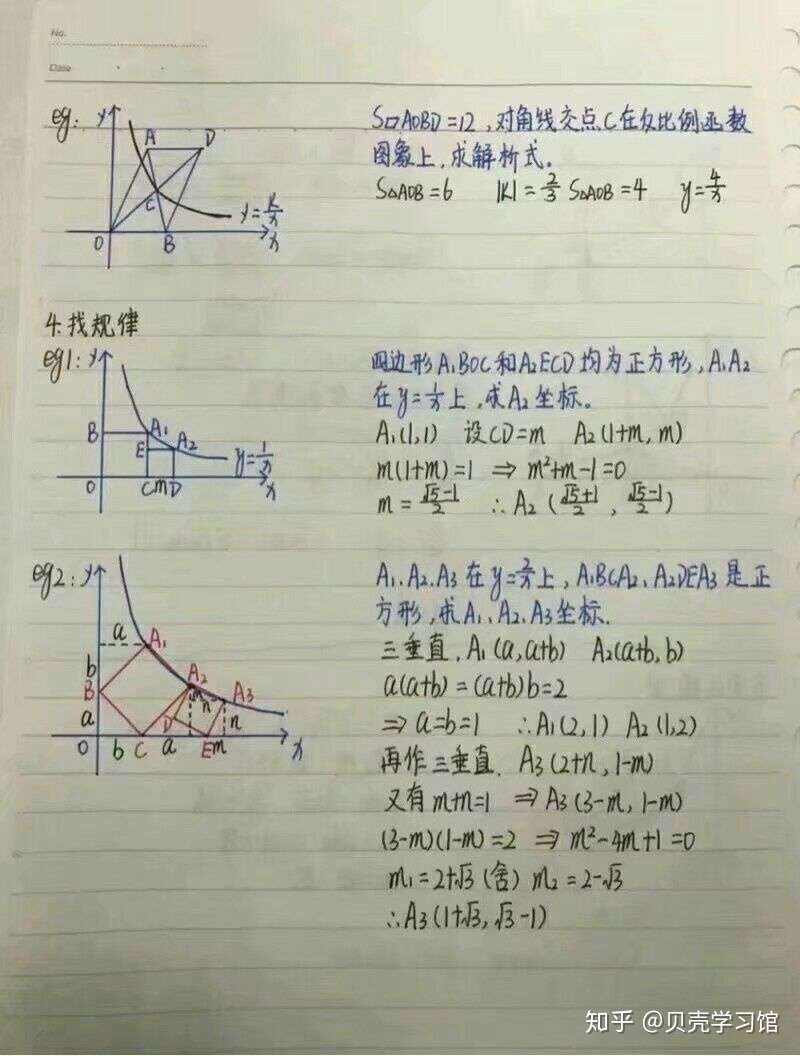 No.
Date
eg:
y
A
D
C
y=k/x
O
B
x
S▱AOBD=12,对角线交点C在反比例函数
图象上,求解析式。
S△AOB=6 |K|=2/3 S△AOB=4 y=4/x
4.找规律
eg1:
y
B
A1
E
A2
y=1/x
O
C
m
D
x
四边形A1BOC和A2ECD均为正方形,A1A2
在y=1/x上,求A2坐标。
A1(1,1) 设CD=m A2(1+m,m)
m(1+m)=1 ⇒ m²+m-1=0
m=(√5-1)/2 ∴A2((√5+1)/2,(√5-1)/2)
eg2:
y
a
A1
b
B
A2
m
n
A3
a
D
n
O
b
C
a
E
m
x
A1、A2、A3在y=2/x上,A1BCA2、A2DEA3是正
方形,求A1、A2、A3坐标.
三垂直,A1(a,a+b) A2(a+b,b)
a(a+b)=(a+b)b=2
⇒a=b=1 ∴A1(2,1) A2(1,2)
再作三垂直,A3(2+n,1-m)
又有m+n=1 ⇒A3(3-m,1-m)
(3-m)(1-m)=2 ⇒ m²-4m+1=0
m1=2+√3(舍) m2=2-√3
∴A3(1+√3,√3-1)
知乎 @贝壳学习馆